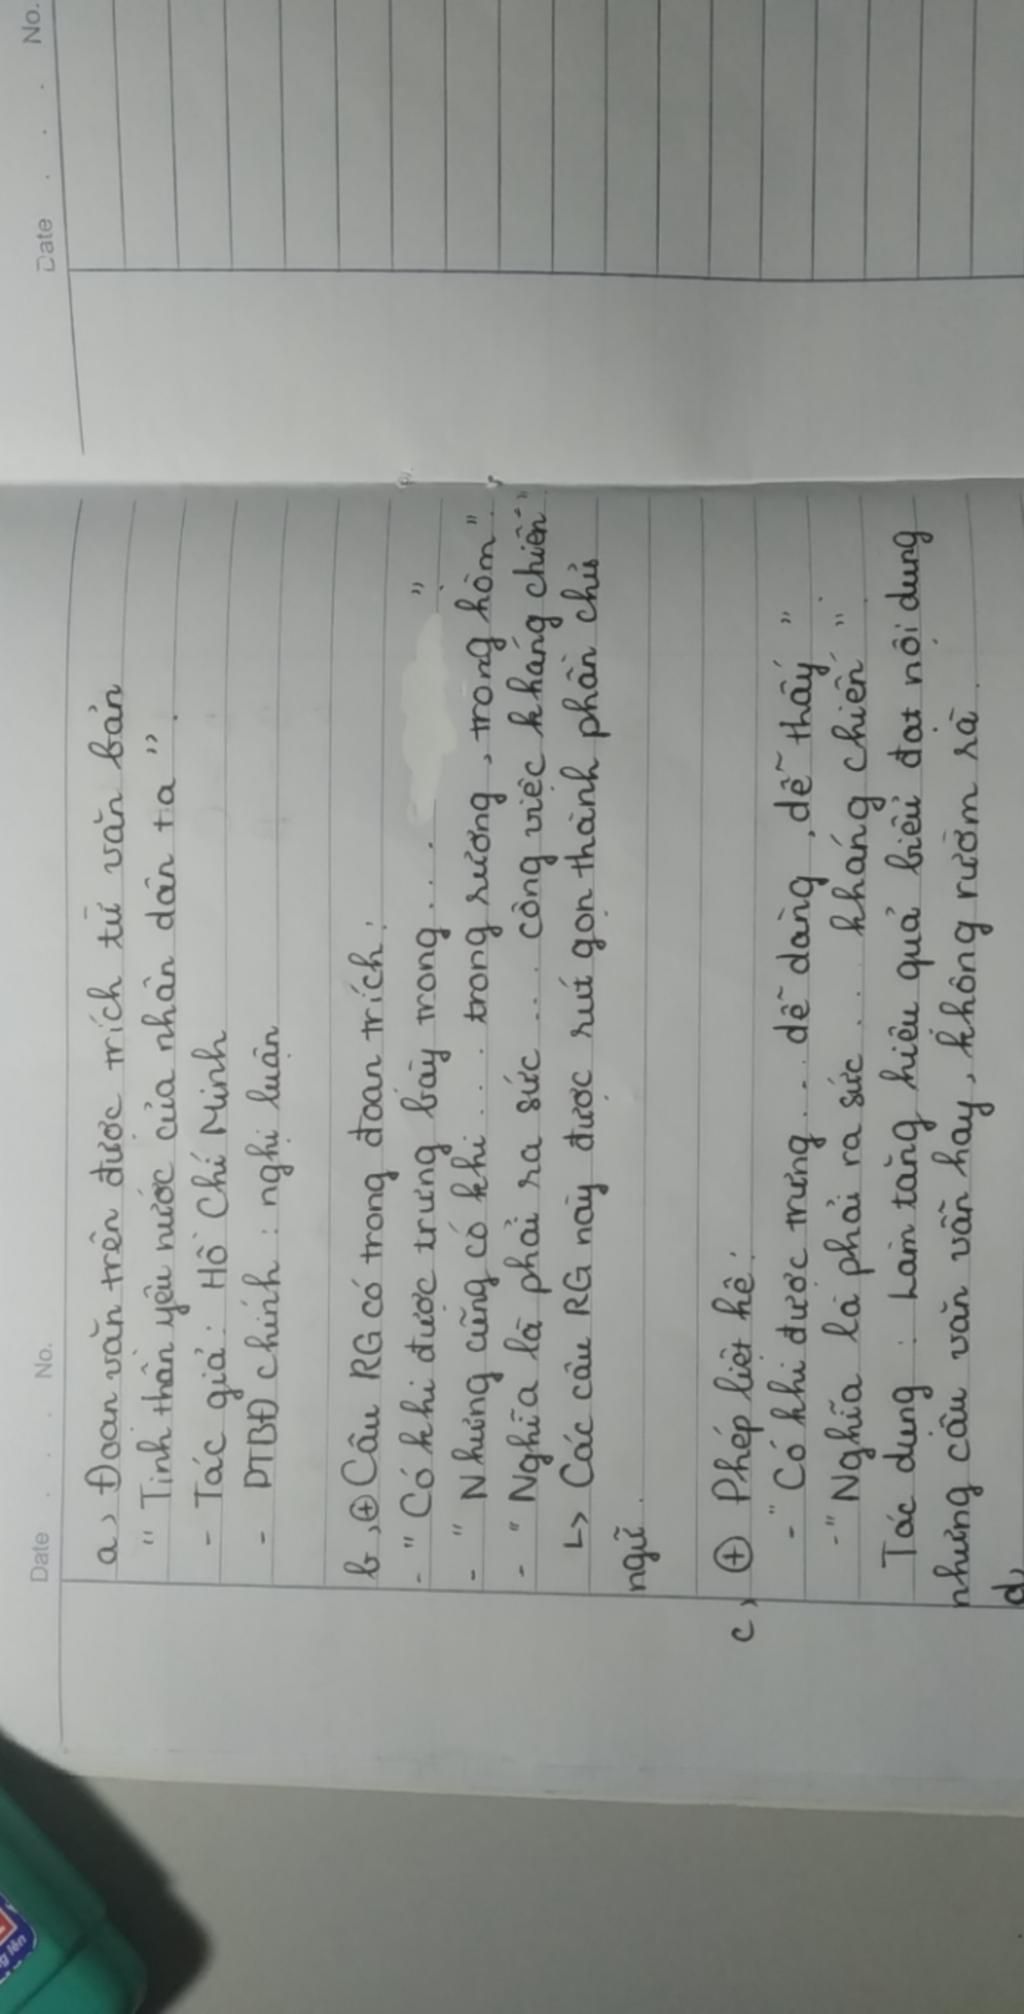 Date . . . No.
a, Đoạn văn trên được trích từ văn bản
" Tinh thần yêu nước của nhân dân ta ".
- Tác giả : Hồ Chí Minh
- PTBĐ chính : nghị luận
b, ⊕ Câu RG có trong đoạn trích :
- " Có khi được trưng bày trong.... ".
- " Nhưng cũng có khi ... trong rương , trong hòm ".
- " Nghĩa là phải ra sức ... công việc kháng chiến "
↳ Các câu RG này được rút gọn thành phần chủ
ngữ.
c, ⊕ Phép liệt kê :
- " Có khi được trưng ... dễ dàng , dễ thấy "
- " Nghĩa là phải ra sức ... kháng chiến ".
Tác dụng : Làm tăng hiệu quả biểu đạt nội dung
những câu văn vẫn hay, không rườm rà.
d,
Date . . . No.